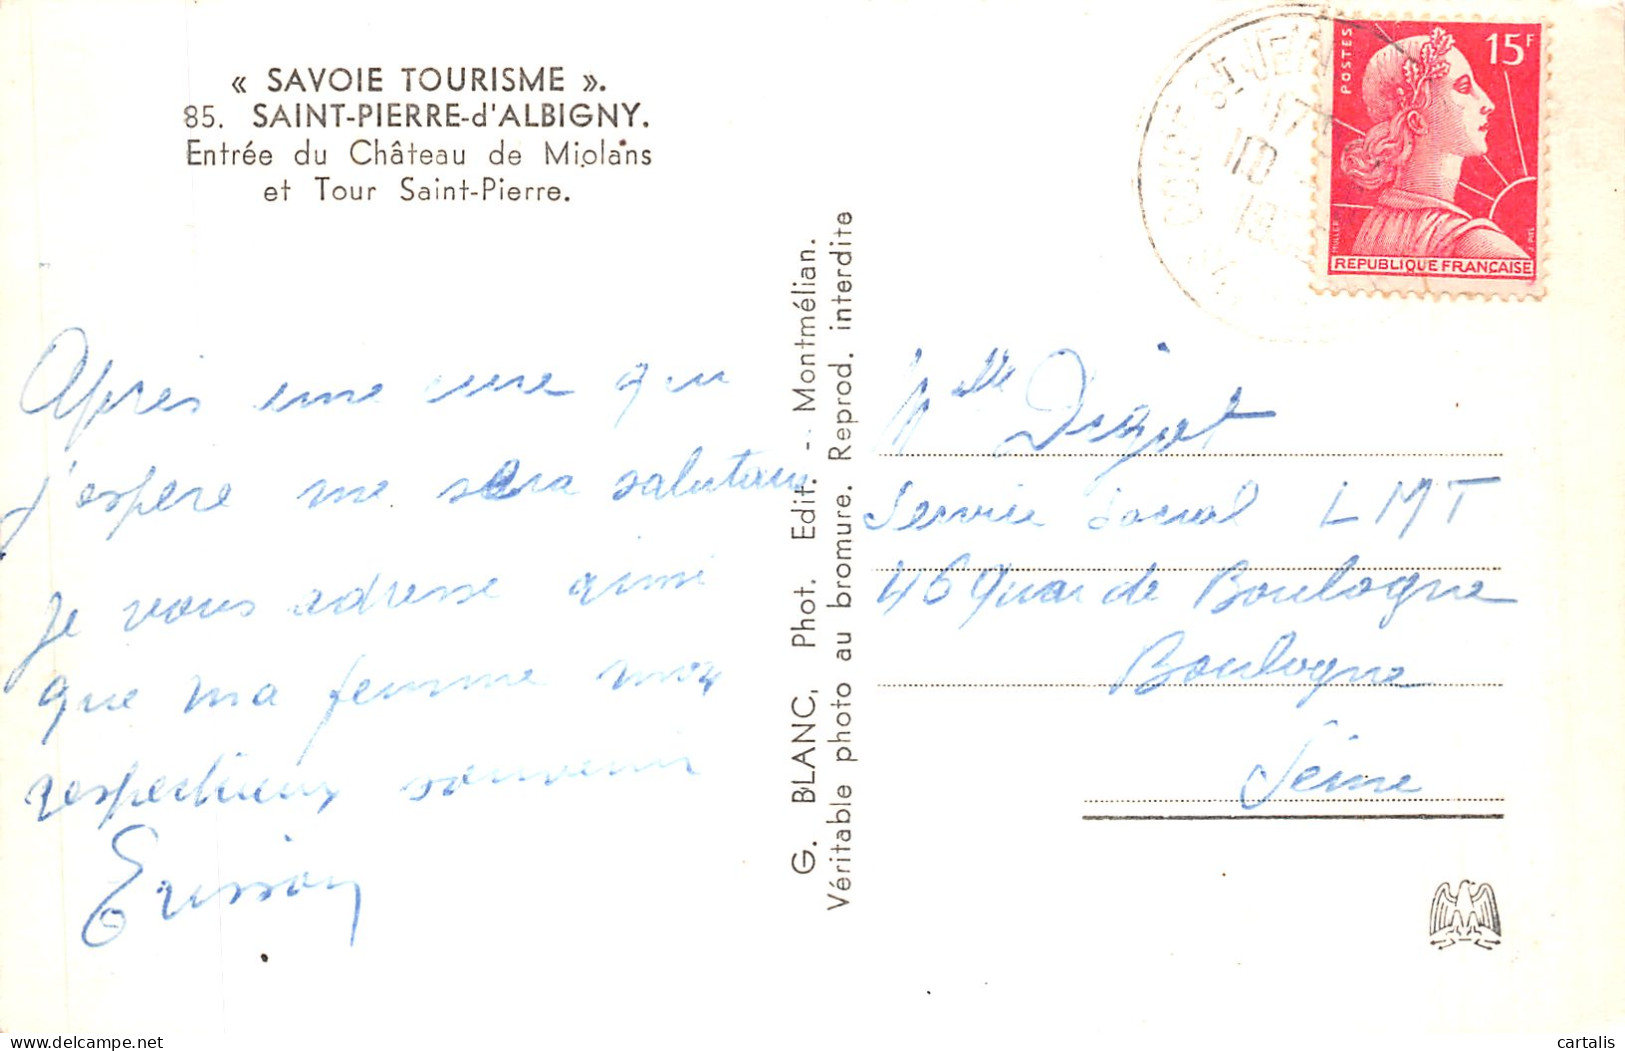 « SAVOIE TOURISME ».
85. SAINT-PIERRE-d'ALBIGNY.
Entrée du Château de Miolans
et Tour Saint-Pierre.
Après une cure qui
j'espère me sera salutaire
je vous adresse ainsi
que ma femme mon
respectueux souvenir
G. BLANC, Phot. Edit. - Montmélian.
Véritable photo au bromure. Reprod. interdite
ST JEAN
POSTES
15F
MULLER
J. PIEL
REPUBLIQUE FRANÇAISE
Mlle Digat
Service Social LMT
46 Quai de Boulogne
Boulogne
Seine
cartalis